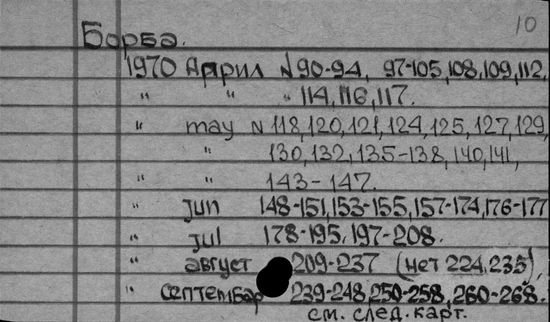 10
Борба.
1970 Април N 90-94, 97-105, 108, 109, 112,
" " " 114, 116, 117.
" may N 118, 120, 121, 124, 125, 127, 129,
" 130, 132, 135-138, 140, 141,
" " 143-147.
" jun 148-151, 153-155, 157-174, 176-177
" jul 178-195, 197-208.
" август 209-237 (нет 224, 235),
" септембар 239-248, 250-258, 260-268.
см. след. карт.